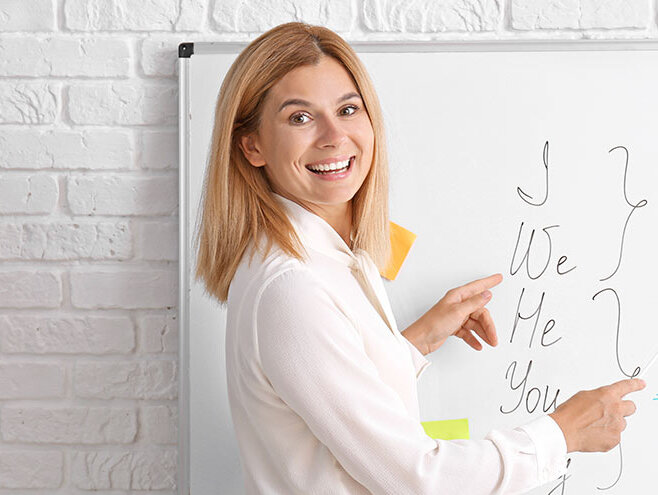 I
We
Me
You